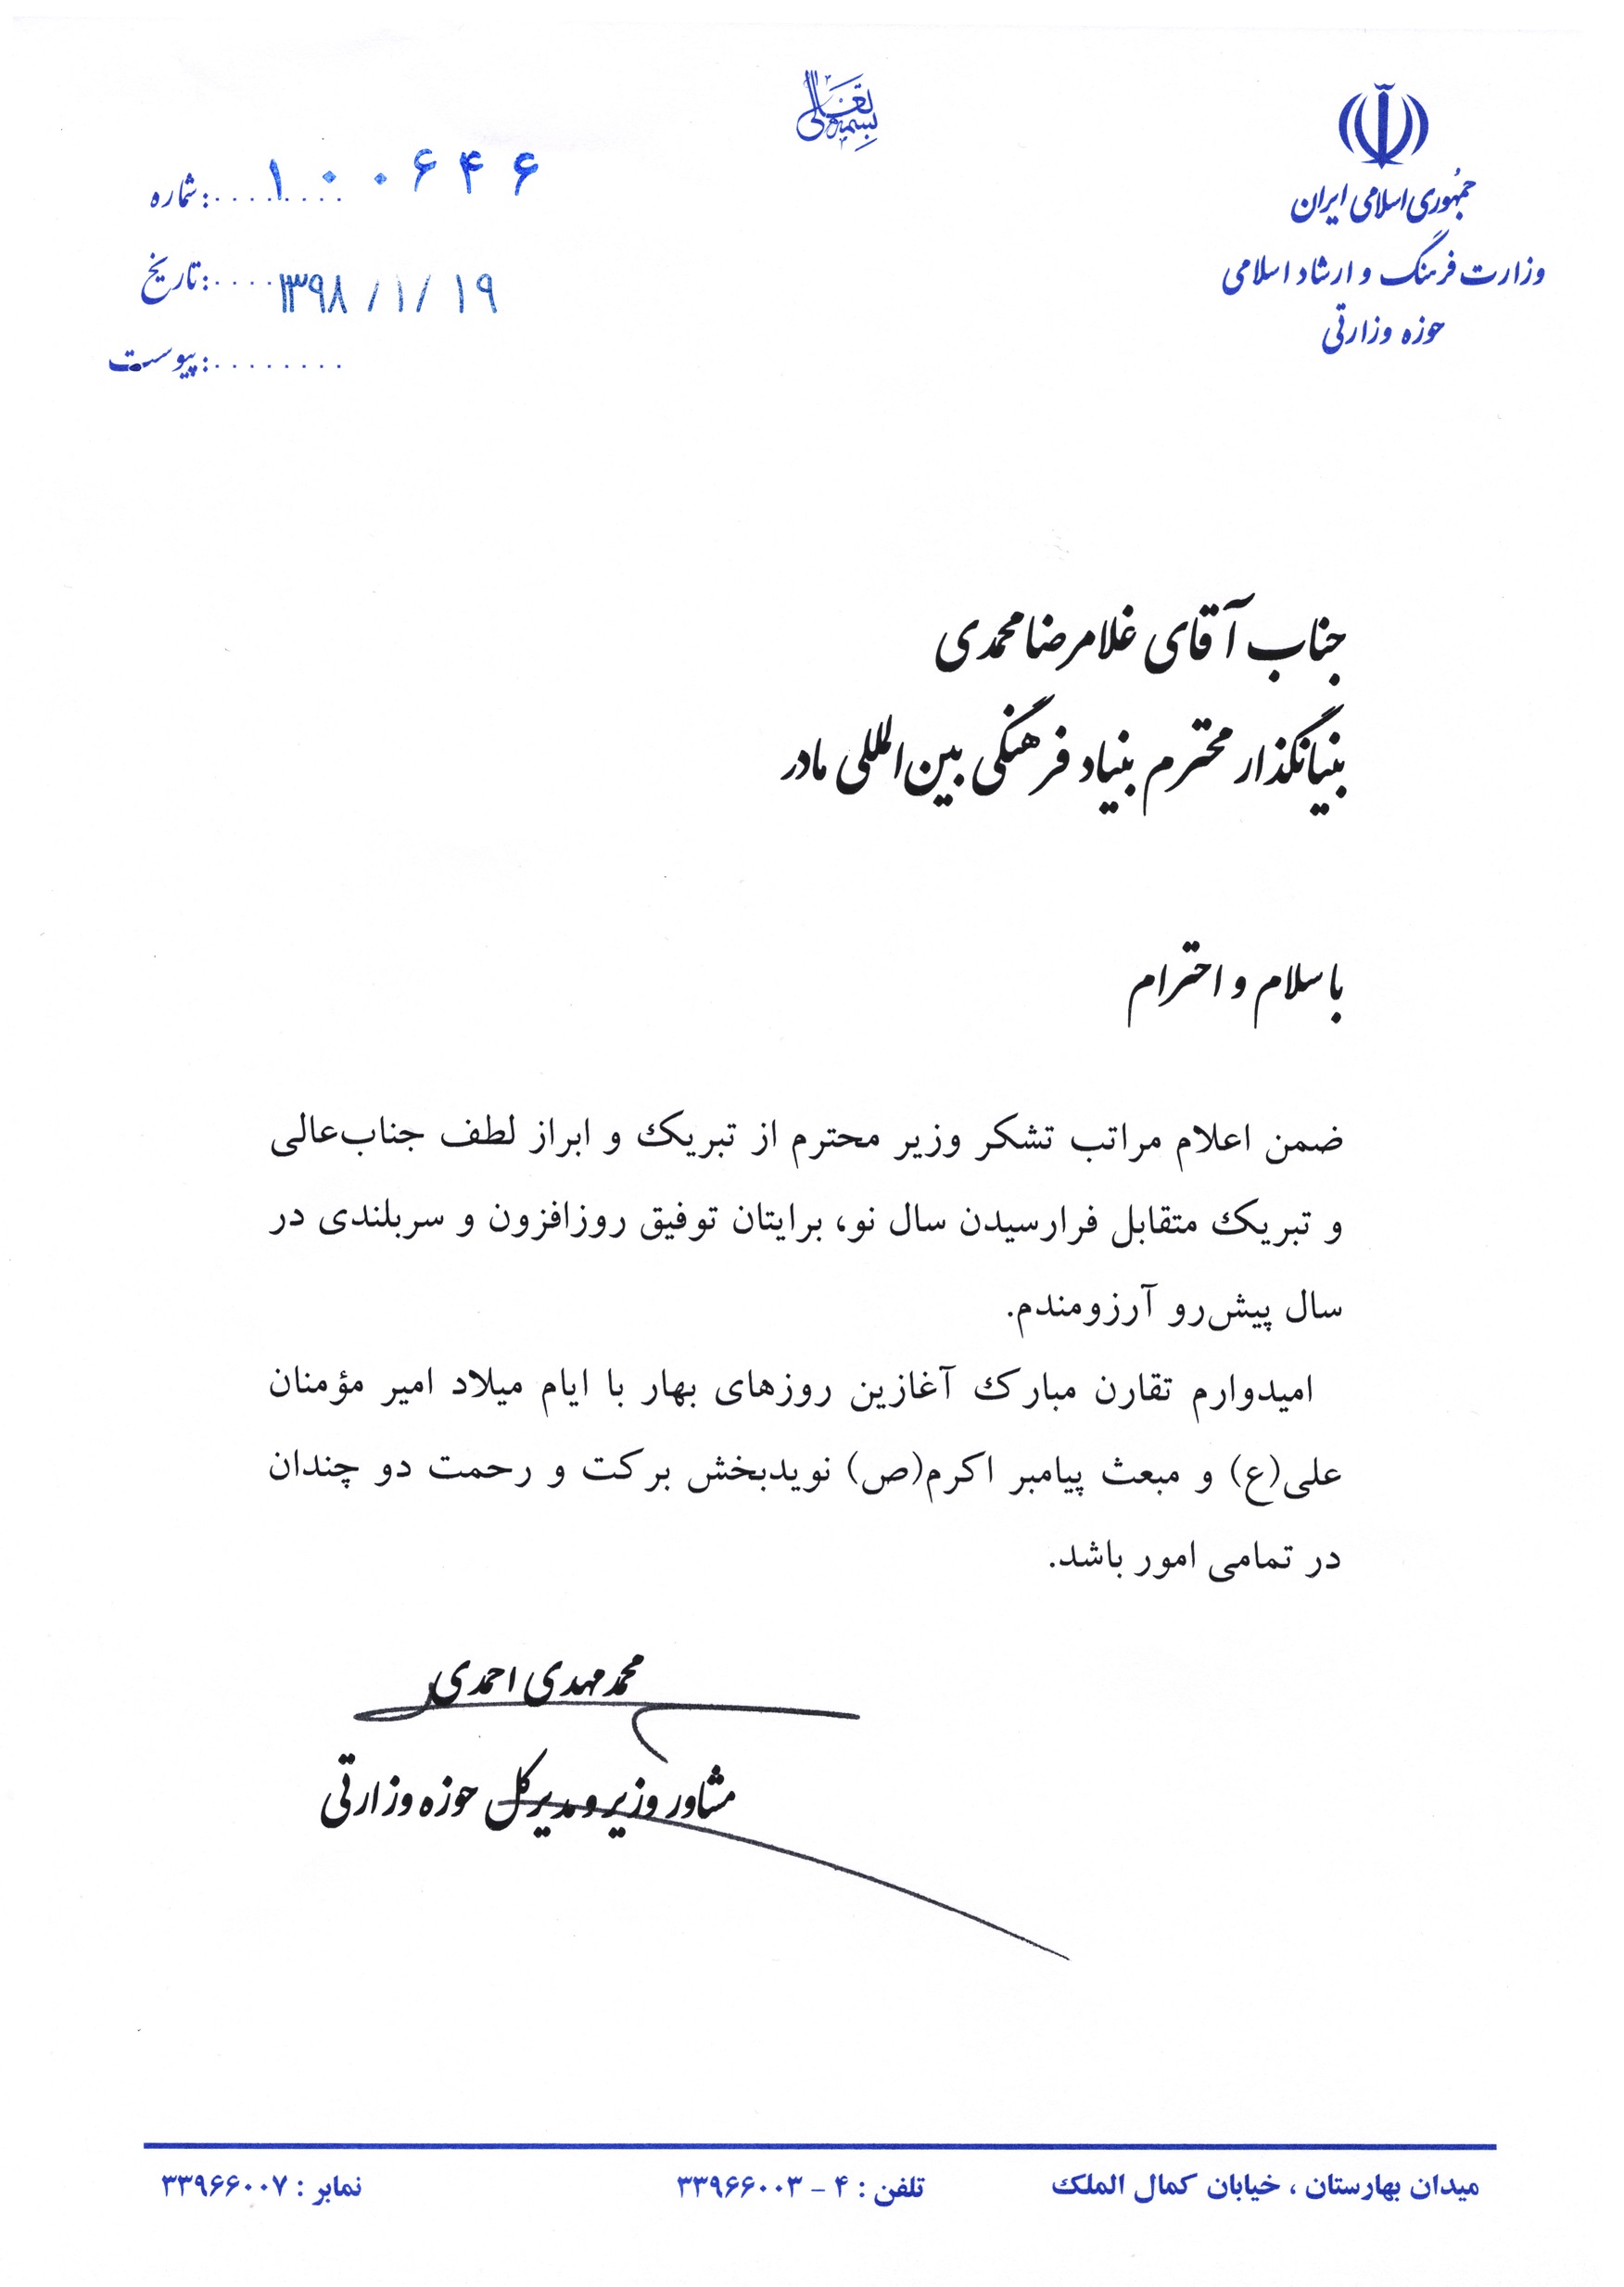 بسمه تعالی
جمهوری اسلامی ایران
وزارت فرهنگ و ارشاد اسلامی
حوزه وزارتی
شماره: ۱۰۰۶۴۶
تاریخ: ۱۳۹۸/۱/۱۹
پیوست: ........
جناب آقای غلامرضا محمدی
بنیانگذار محترم بنیاد فرهنگی بین‌المللی مادر
با سلام و احترام
ضمن اعلام مراتب تشکر وزیر محترم از تبریک و ابراز لطف جناب‌عالی
و تبریک متقابل فرارسیدن سال نو، برایتان توفیق روزافزون و سربلندی در
سال پیش‌رو آرزومندم.
امیدوارم تقارن مبارک آغازین روزهای بهار با ایام میلاد امیر مؤمنان
علی(ع) و مبعث پیامبر اکرم(ص) نویدبخش برکت و رحمت دو چندان
در تمامی امور باشد.
محمدمهدی احمدی
مشاور وزیر و مدیرکل حوزه وزارتی
میدان بهارستان ، خیابان کمال الملک
تلفن : ۴ - ۳۳۹۶۶۰۰۳
نمابر : ۳۳۹۶۶۰۰۷